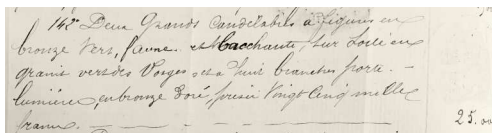 142° Deux Grands Candélabres à figures en
bronze vert, faune et Bacchante, sur socle en
granit vert des Vosges et à huit branches porte-
lumière, en bronze doré, prisés Vingt Cinq mille
francs. 25.00